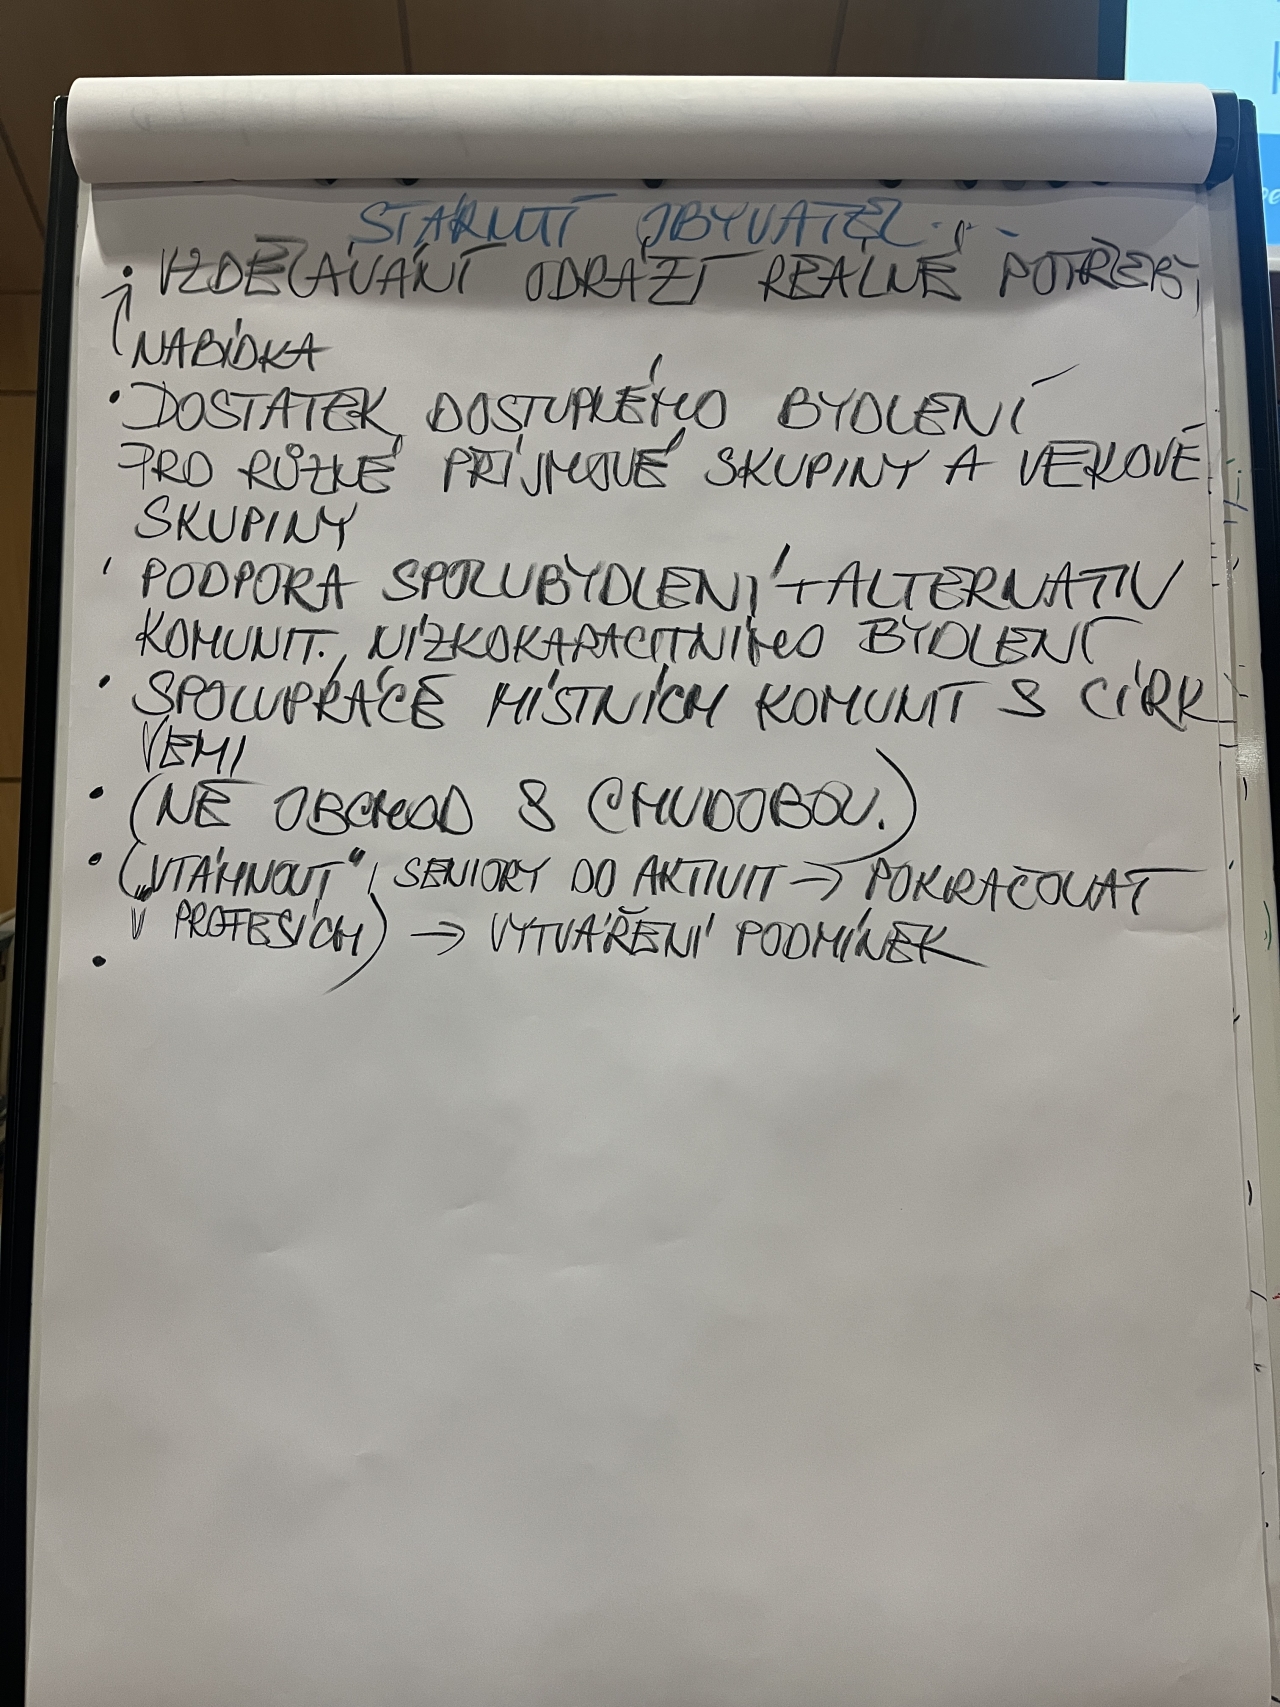 STÁRNUTÍ OBYVATEL...
• VZDĚLÁVÁNÍ ODRÁŽÍ REÁLNÉ POTŘEBY,
NABÍDKA
• DOSTATEK DOSTUPNÉHO BYDLENÍ
PRO RŮZNÉ PŘÍJMOVÉ SKUPINY A VĚKOVÉ
SKUPINY
• PODPORA SPOLUBYDLENÍ + ALTERNATIV
KOMUNIT., NÍZKOKAPACITNÍHO BYDLENÍ
• SPOLUPRÁCE MÍSTNÍCH KOMUNIT S CÍRK
VEMI
• (NE OBCHOD S CHUDOBOU.)
• („VTÁHNOUT" SENIORY DO AKTIVIT → POKRAČOVAT
V PROFESÍCH) → VYTVÁŘENÍ PODMÍNEK
•